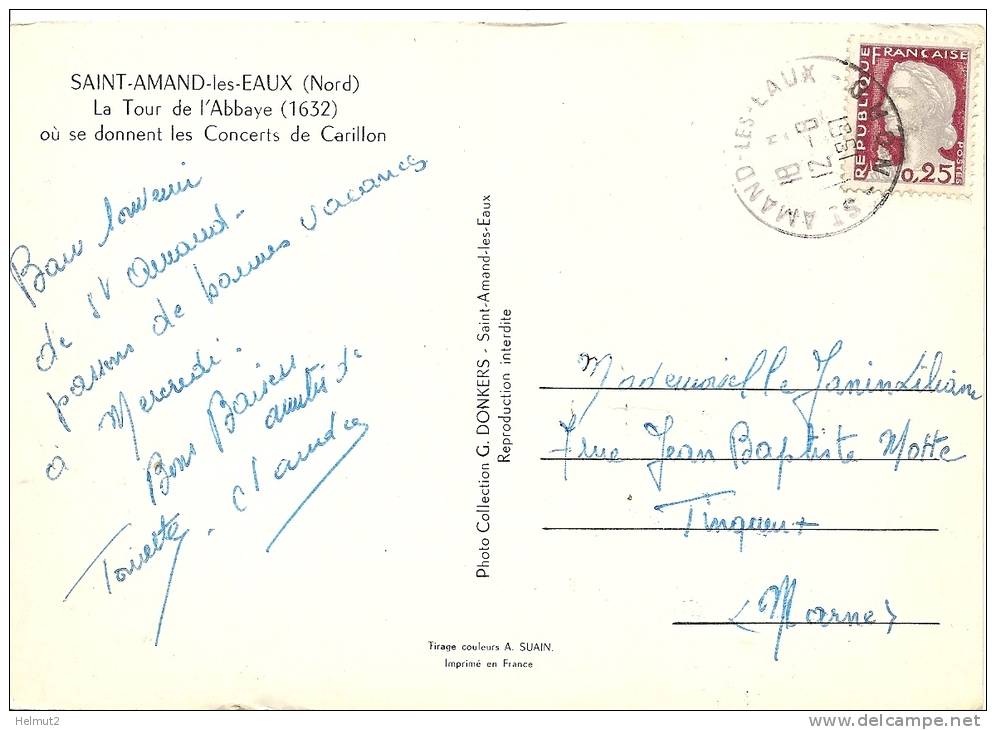 SAINT-AMAND-les-EAUX (Nord)
La Tour de l'Abbaye (1632)
où se donnent les Concerts de Carillon
Bon Souvenir
de St Amand -
passons de bonnes vacances
à Mercredi.
Bons Baisers
amitié de
Toinette. Claudie
Photo Collection G. DONKERS - Saint-Amand-les-Eaux
Reproduction interdite
ST AMAND-LES-EAUX
18 H
12-8
1961
RÉPUBLIQUE FRANÇAISE
0,25
POSTES
Mademoiselle Janin Liliane
7 rue Jean Baptiste Motte
Tinqueux
(Marne)
Tirage couleurs A. SUAIN.
Imprimé en France
Helmut2
www.delcampe.net